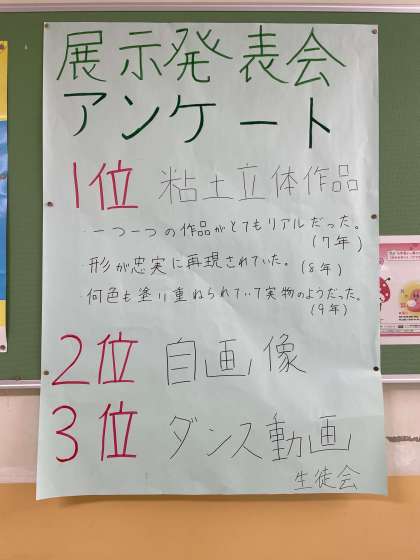 展示発表会
アンケート
1位 粘土立体作品
・一つ一つの作品がとてもリアルだった。
(7年)
・形が忠実に再現されていた。(8年)
・何色も塗り重ねられていて実物のようだった。
(9年)
2位 自画像
3位 ダンス動画
生徒会